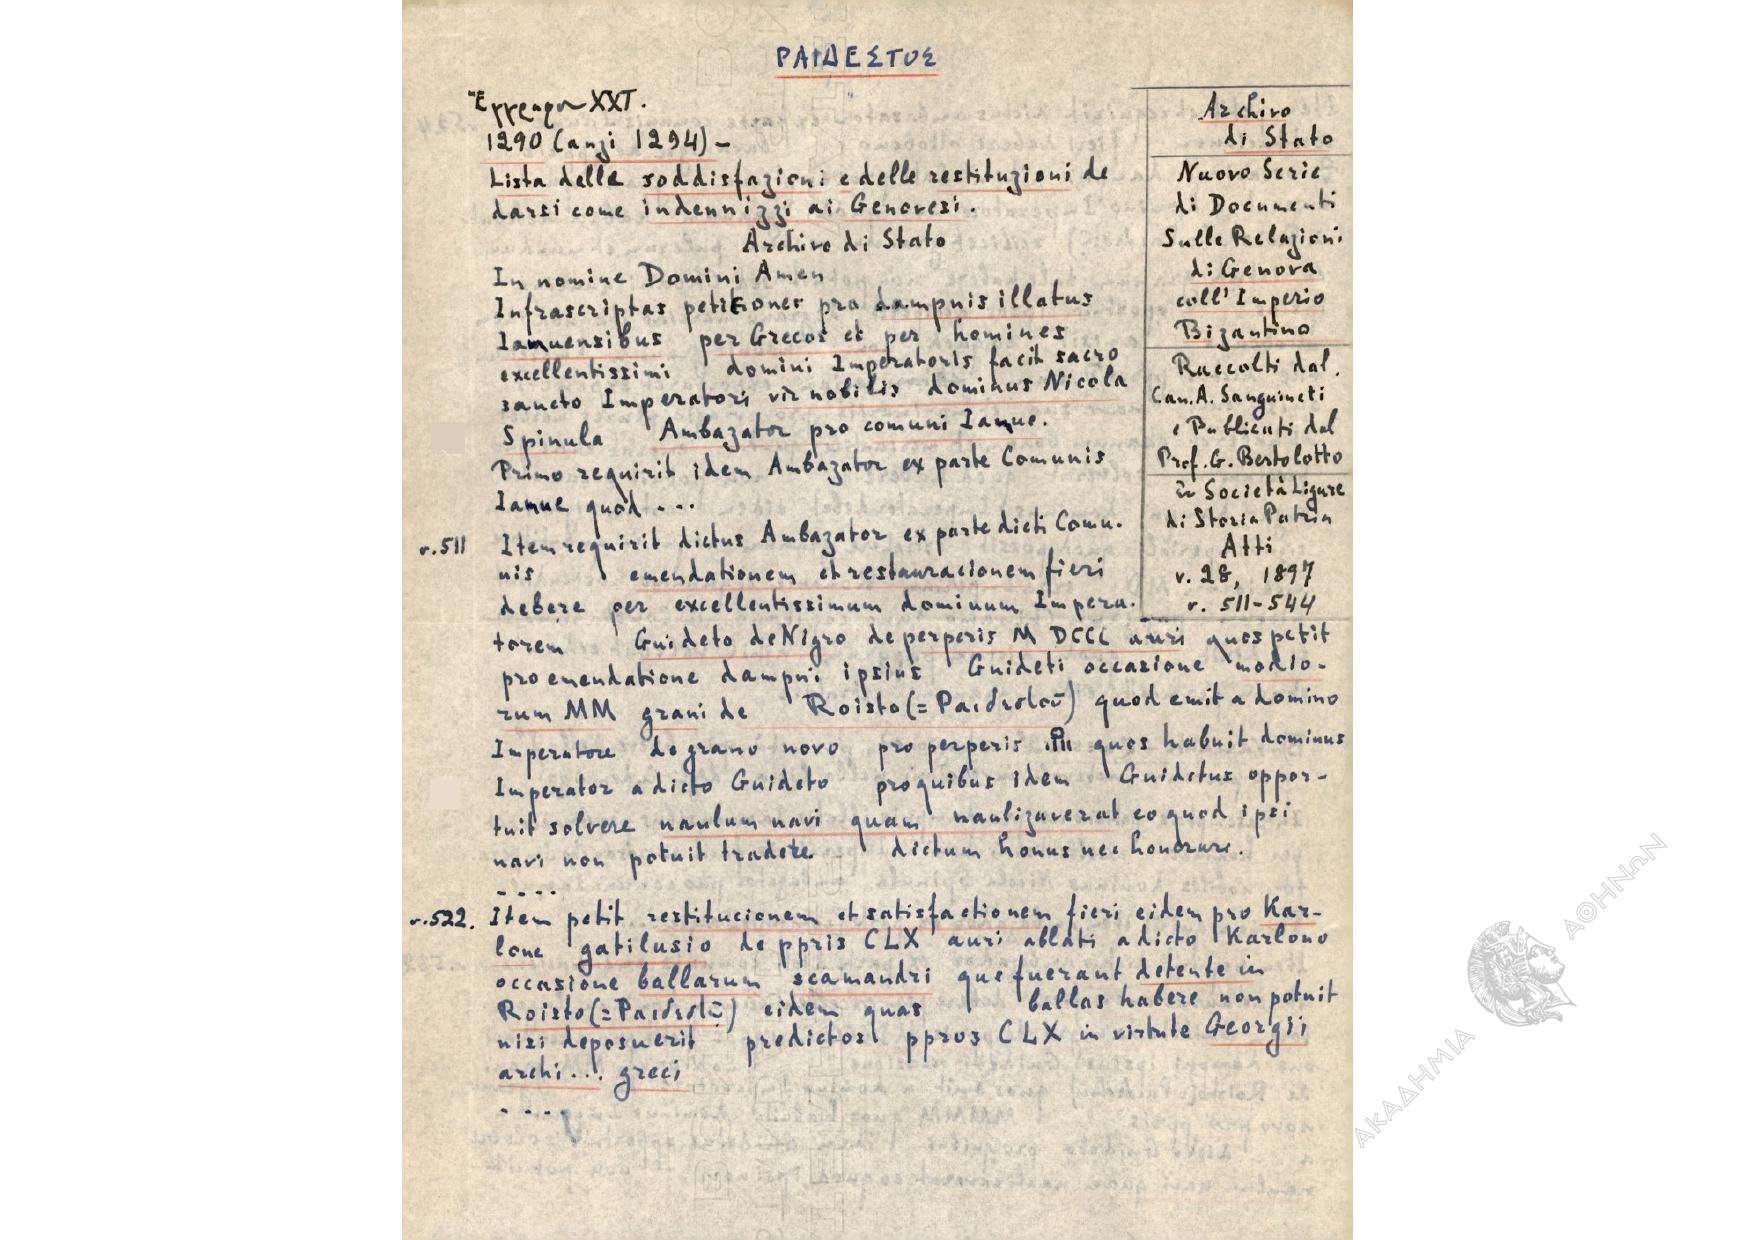 ΡΑΙΔΕΣΤΟΣ
Ἔγγραφον XXI.
1290 (anzi 1294) –
Lista delle soddisfazioni e delle restituzioni de
darsi come indennizzi ai Genovesi.
Archivo di Stato
In nomine Domini Amen
Infrascriptas petitiones pro dampnis illatus
Ianuensibus per Grecos et per homines
excellentissimi domini Imperatoris facit sacro
sancto Imperatori vir nobilis dominus Nicola
Spinula Ambazator pro comuni Ianue.
Primo requirit idem Ambazator ex parte Comunis
Ianue quod ...
Archivo
di Stato
Nuovo Serie
di Documenti
Sulle Relazioni
di Genova
coll' Imperio
Bizantino
Raccolti dal
Can. A. Sanguineti
e Publicati dal
Prof. G. Bertolotto
in Società Ligure
di Storia Patria
Atti
v. 28, 1897
σ. 511-544
σ. 511 Item requirit dictus Ambazator ex parte dicti Comu-
nis emendationem et restauracionem fieri
debere per excellentissimum dominum Impera-
torem Guideto de Nigro de perperis M DCCC auri quos petit
pro emendatione dampni ipsius Guideti occasione modio-
rum MM grani de Roisto (= Ραιδεστοῦ) quod emit a domino
Imperatore de grano novo pro perperis quos habuit dominus
Imperator a dicto Guideto pro quibus idem Guidetus oppor-
tuit solvere naulum navi quam naulizaverat eo quod ipsi
navi non potuit tradere dictum honus nec honerare.
....
σ. 522. Item petit restitucionem et satisfactionem fieri eidem pro Kar-
lone gatilusio de ppris CLX auri ablati a dicto Karlono
occasione ballarum scamandri que fuerant detente in
Roisto (= Ραιδεστῶ) eidem quas ballas habere non potuit
nisi deposuerit predictos ppros CLX in virtute Georgii
archi... greci
....
ΑΚΑΔΗΜΙΑ ΑΘΗΝΩΝ